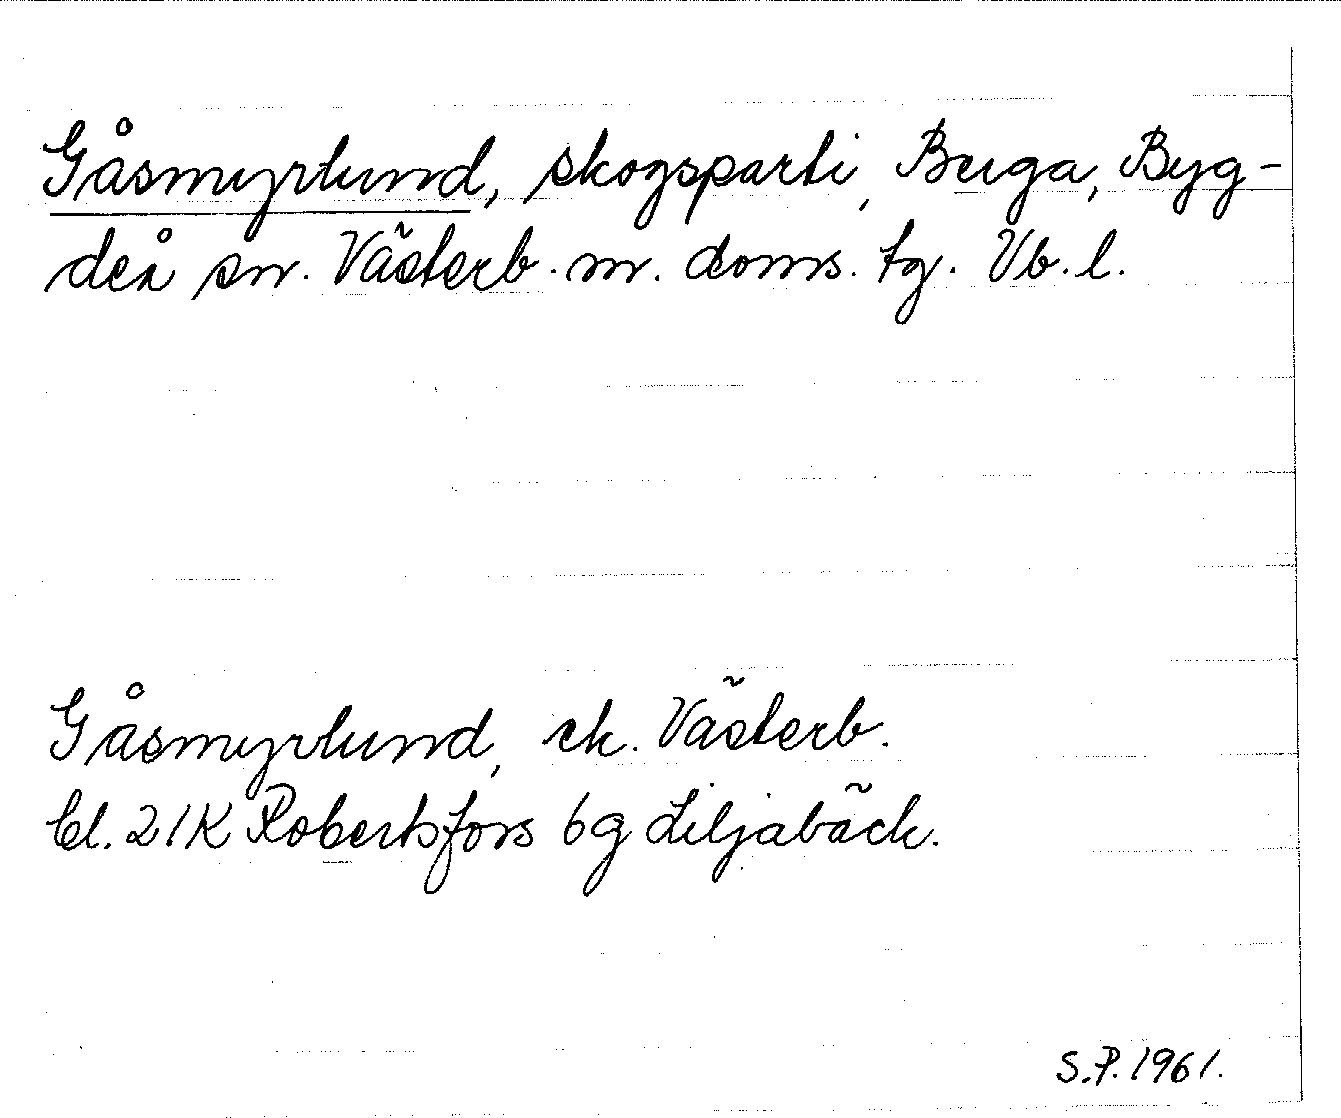 Gåsmyrlund, skogsparti, Berga, Byg-
deå sn. Västerb. n. doms. tg. Vb. l.
Gåsmyrlund, ek. Västerb.
bl. 21K Robertsfors 6g Liljabäck.
S.P. 1961.